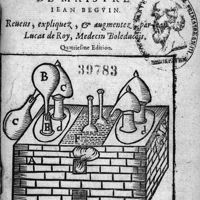 DE MAISTRE
IEAN BEGVIN.
Reueus, expliquez, & augmentez, par Iean
Lucas de Roy, Medecin Boleducois.
Quatriesme Edition.
39783
B
C
C
d
d
A